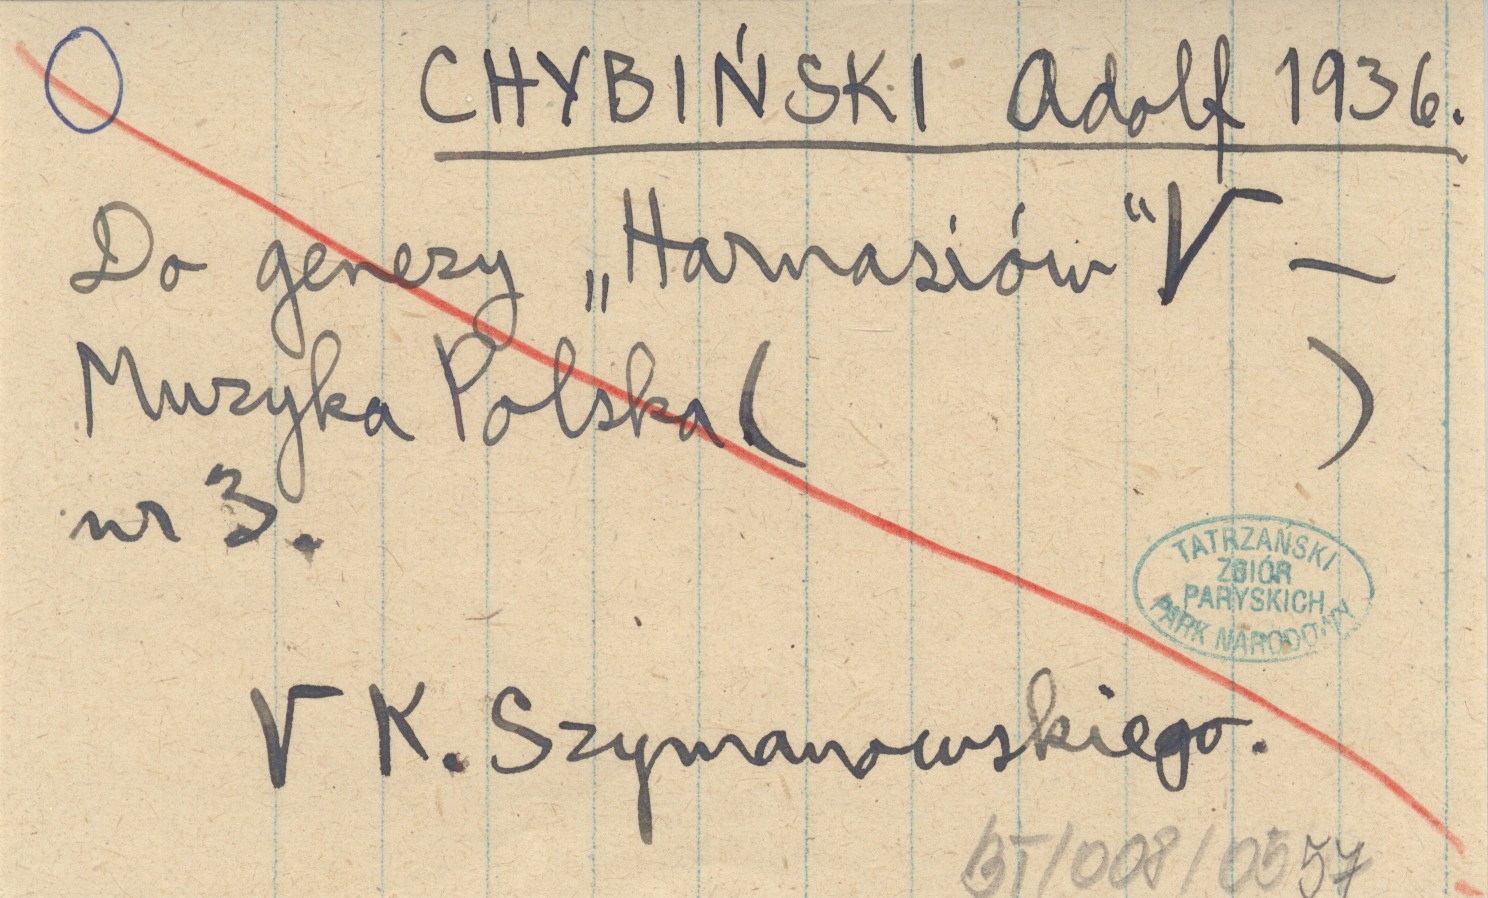 CHYBIŃSKI Adolf 1936.
Do genezy „Harnasiów“ V —
Muzyka Polska (                    )
nr 3.
TATRZAŃSKI
ZBIÓR
PARYSKICH
PARK NARODOWY
V K. Szymanowskiego.
BT/008/0557